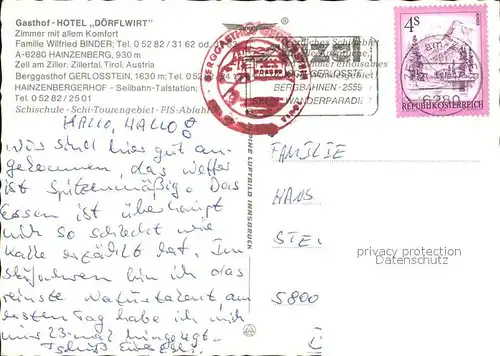 Gasthof - HOTEL „DÖRFLWIRT"
Zimmer mit allem Komfort
Familie Wilfried BINDER; Tel. 0 52 82 / 31 62 od.
A-6280 HAINZENBERG, 930 m
Zell am Ziller, Zillertal, Tirol, Austria
Berggasthof GERLOSSTEIN, 1630 m; Tel.
HAINZENBERGERHOF - Seilbahn-Talstation;
Tel. 0 52 82 / 25 01
Schischule - Schi-Tourengebiet - FIS-Abfahrt
BERGGASTHOF GERLOSSTEIN
BERGBAHNEN · 2559
WANDERPARADIES
4S
REPUBLIK ÖSTERREICH
6280
HALLO, HALLO!
Wir sind hier gut an-
gekommen, das Wetter
ist Spitzenmäßig. Das
essen ist überhaupt
nit so schlecht wie
Kalle erzählt hat. Im
Skifahren bin ich das
reinste Naturtalent, am
ersten Tag habe ich mich
nur 23-mal hingelegt.
Tschüß
ALPINE LUFTBILD INNSBRUCK
FAMILIE
HANS
STE
5800
privacy protection
Datenschutz